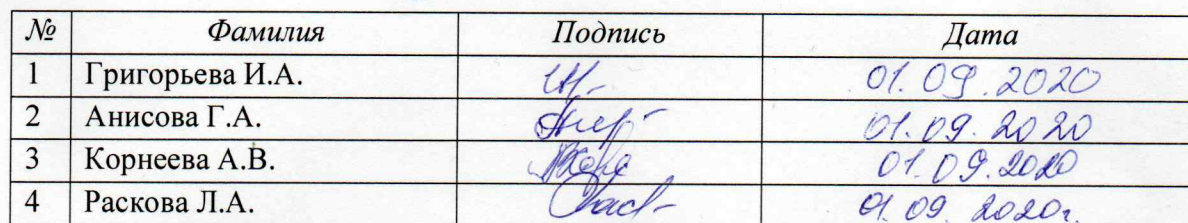 № Фамилия Подпись Дата
1 Григорьева И.А. 01.09.2020
2 Анисова Г.А. 01.09.2020
3 Корнеева А.В. 01.09.2020
4 Раскова Л.А. 01.09.2020г.